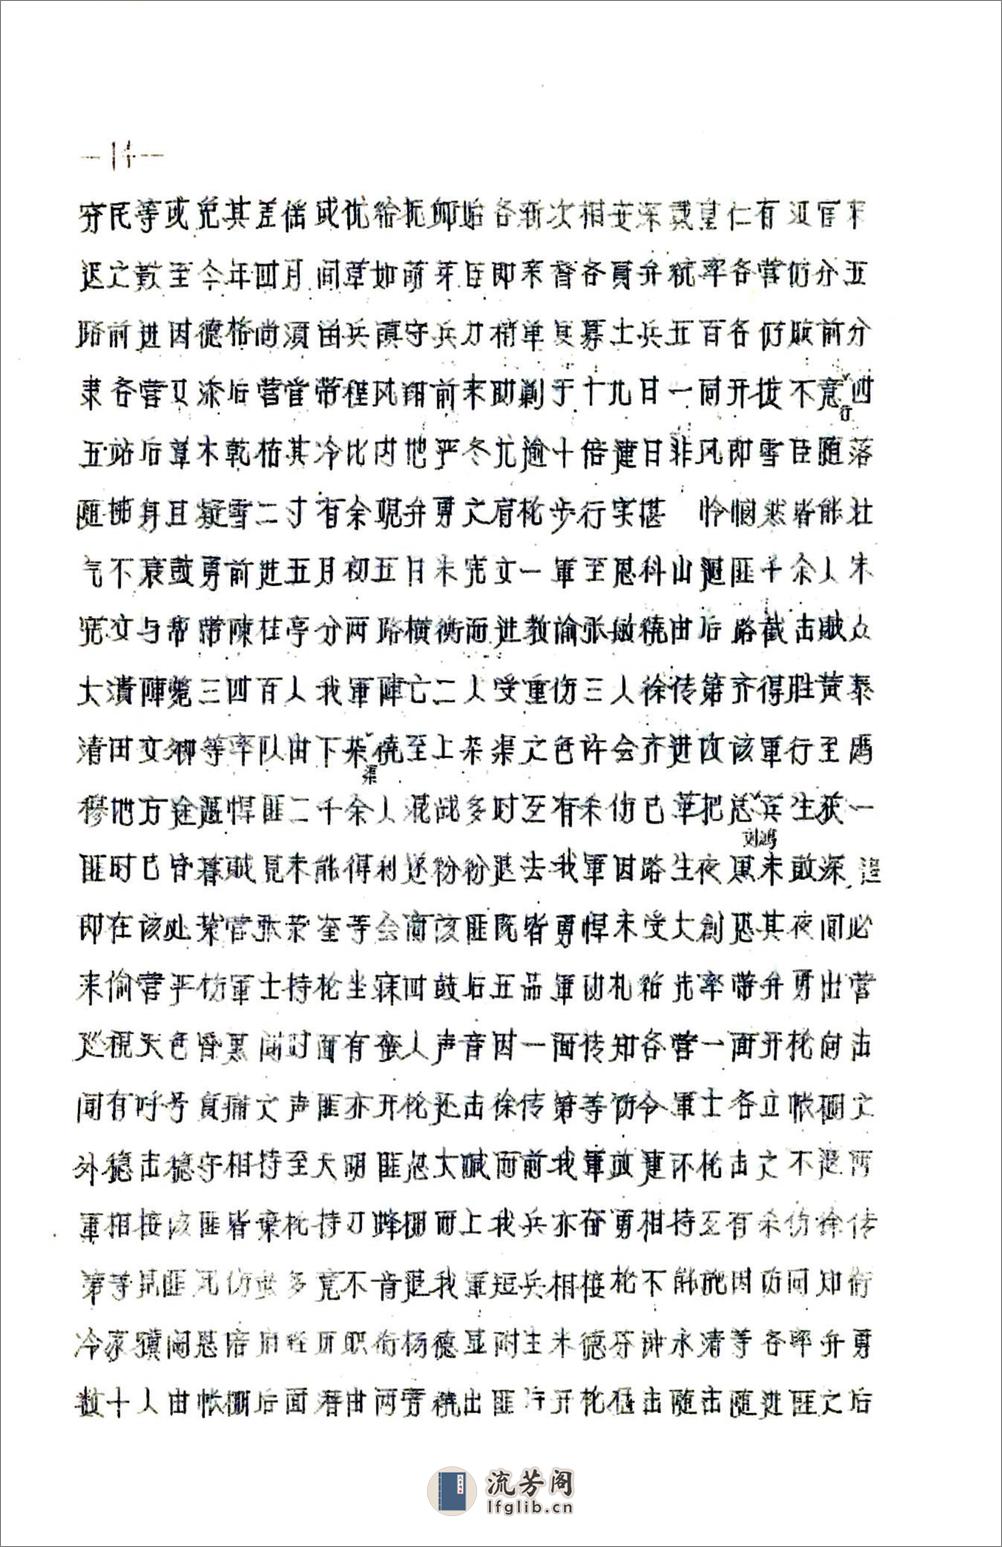 —14—
穷民等或免其差徭或优给抚卹始各渐次相安深戴皇仁有汉官来
迟之叹至今年四月间草如萌芽臣即亲督各员弁统率各营仍分五
路前进因德格尚须留兵镇守兵力稍单复募土兵五百名仍照前分
隶各营又添后营管带程风翔前来助剿于十九日一同开拔不意行四
五站后草木乾枯其冷比内地严冬尤逾十倍连日非风即雪臣随落
随拂身且凝雪二寸有余现弁勇之肩枪步行实堪 怜悯然皆能壮
气不衰鼓勇前进五月初五日朱宪文一軍至恩科山遇匪千余人朱
宪文与帮带陳桂亭分两路横衝而进教谕张敏繞由后路截击贼众
大潰陣毙三四百人我軍陣亡二人受重伤三人徐传第齐得胜黄泰
清田文卿等率队由下杂渠繞至上杂渠之色许会齐进攻该軍行至马
穆地方途遇悍匪二千余人混战多时互有杀伤已革把总刘鸿宾生获一
匪时已昏暮贼見未能得利遂纷纷退去我軍因路生夜黑未敢深追
即在该处紥营张荣奎等会商该匪既皆勇悍未受大創恐其夜间必
来偷营严饬軍士持枪坐寐四鼓后五品軍功札给先率带弁勇出营
巡視天色昏黑闻对面有蛮人声音因一面传知各营一面开枪向击
闻有呼号負痛之声匪亦开枪还击徐传第等饬令軍士各立帐棚之
外稳击稳守相持至天明匪忽大喊而前我軍改連环枪击之不退两
軍相接该匪皆棄枪持刀蜂拥而上我兵亦奋勇相持互有杀伤徐传
第等見匪死伤虽多竟不肯退我軍短兵相接枪不能施因访问知衔
冷家骥闵恩培府经历职衔杨德显附生米德芬钟永清等各率弁勇
数十人由帐棚后面潜由两旁繞出匪后开枪猛击随击随进匪之后
流芳阁
lfglib.cn